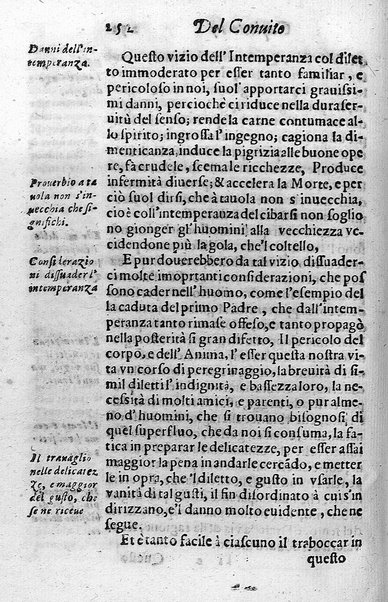 252 Del Conuito
Danni dell'in-
temperanza.
Questo vizio dell'Intemperanza col dilet
to immoderato per esser tanto familiar, e
pericoloso in noi, suol apportarci grauissi
mi danni, percioche ci riduce nella duraser-
uitù del senso; rende la carne contumace al-
lo spirito; ingrossa l'ingegno; cagiona la di-
menticanza, induce la pigrizia alle buone ope
re, fà crudele, scema le ricchezze, Produce
infermità diuerse; & accelera la Morte, e per
ciò suol dirsi, che à tauola non s'inuecchia,
cioè coll'intemperanza del cibarsi non soglio
no gionger gl'huomini alla vecchiezza vc-
cidendone più la gola, che'l coltello,
Prouerbio a ta
uola non s'in-
uecchia che si-
gnifichi.
E pur douerebbero da tal vizio dissuader-
ci molte imoprtanti considerazioni, che pos
sono cader nell'huomo, come l'esempio del
la caduta del primo Padre, che dall'intem-
peranza tanto rimase offeso, e tanto propagò
nella posterità si gran difetto, Il pericolo del
corpo, e dell'Anima, l'esser questa nostra vi-
ta vn corso di peregrinaggio, la breuità di si-
mil diletti l'indignità, e bassezza loro, la ne-
cessità di molti amici, e parenti, o pur alme-
no d'huomini, che si trouano bisognosi di
quel superfluo, che da noi si consuma, la fa-
tica in preparar le delicatezze, per esser assai
maggior la pena in andarle cercãdo, e metter
le in opra, che'l diletto, e gusto in vsarle, la
vanità di tal gusti, il fin disordinato à cui s'in
dirizzano, e'l danno molto euidente, che ne
segue,
Considerazio
ni dissuader l'
intemperanza
Il trauaglio
nelle delicatez
ze, e maggior
del gusto, che
se ne riceue
Et è tanto facile à ciascuno il traboccar in
questo